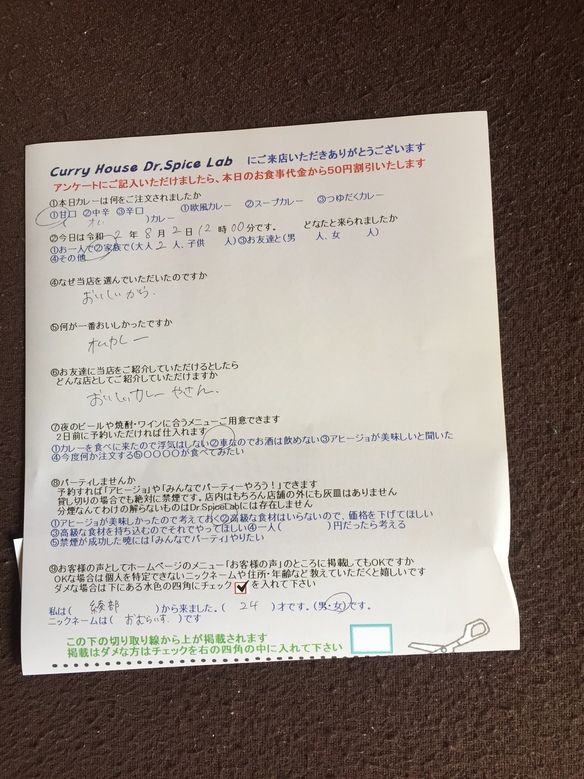 Curry House Dr.Spice Lab にご来店いただきありがとうございます
アンケートにご記入いただけましたら、本日のお食事代金から50円割引いたします
①本日カレーは何をご注文されましたか
①甘口 ②中辛 ③辛口 ①欧風カレー ②スープカレー ③つゆだくカレー
( オム )カレー
②今日は令和 2 年 8 月 2 日 12 時 00 分です。 どなたと来られましたか
①お一人で②家族で(大人 2 人、子供 人)③お友達と(男 人、女 人)
④その他
④なぜ当店を選んでいただいたのですか
おいしいから.
⑤何が一番おいしかったですか
オムカレー
⑥お友達に当店をご紹介していただけるとしたら
どんな店としてご紹介していただけますか
おいしいカレーやさん.
⑦夜のビールや焼酎・ワインに合うメニューご用意できます
2日前に予約いただければ仕入れます
①カレーを食べに来たので浮気はしない②車なのでお酒は飲めない③アヒージョが美味しいと聞いた
④今度何か注文する⑤〇〇〇〇が食べてみたい
⑧パーティしませんか
予約すれば「アヒージョ」や「みんなでパーティーやろう！」できます
貸し切りの場合でも絶対に禁煙です。店内はもちろん店舗の外にも灰皿はありません
分煙なんてわけの解らないものはDr.SpiceLabには存在しません
①アヒージョが美味しかったので考えておく②高級な食材はいらないので、価格を下げてほしい
③高級な食材を持ち込むのでそれでやってほしい④一人( )円だったら考える
⑤禁煙が成功した暁には「みんなでパーティ」やりたい
⑨お客様の声としてホームページのメニュー「お客様の声」のところに掲載してもOKですか
OKな場合は個人を特定できないニックネームや住所・年齢など教えていただくと嬉しいです
ダメな場合は下にある水色の四角にチェック を入れて下さい
私は( 綾部 )から来ました。( 24 )才です。(男・女)です。
ニックネームは( おむらいす. )です
この下の切り取り線から上が掲載されます
掲載はダメな方はチェックを右の四角の中に入れて下さい